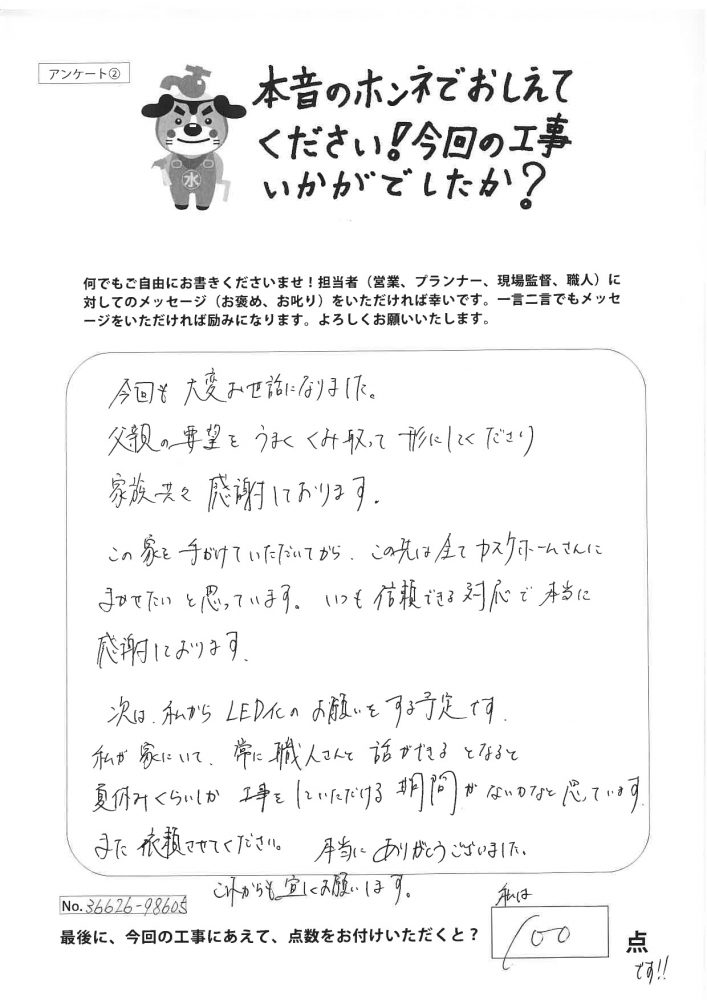 アンケート②
本音のホンネでおしえて
ください!今回の工事
いかがでしたか?
水
何でもご自由にお書きくださいませ!担当者（営業、プランナー、現場監督、職人）に
対してのメッセージ（お褒め、お叱り）をいただければ幸いです。一言二言でもメッセ
ージをいただければ励みになります。よろしくお願いいたします。
今回も 大変お世話になりました。
父親の要望を うまく くみ取って 形にしてくださり
家族共々 感謝しております。
この家を手がけていただいてから、この先は全てカスケホームさんに
まかせたいと思っています。いつも信頼できる対応で本当に
感謝しております。
次は、私からLED化のお願いをする予定です。
私が家にいて、常に職人さんと話ができるとなると
夏休みくらいしか 工事をしていただける期間がないかなと思っています。
また依頼させてください。 本当にありがとうございました。
これからも宜しくお願いします。
No.36626-98605
最後に、今回の工事にあえて、点数をお付けいただくと? 私は 100 点
です!!